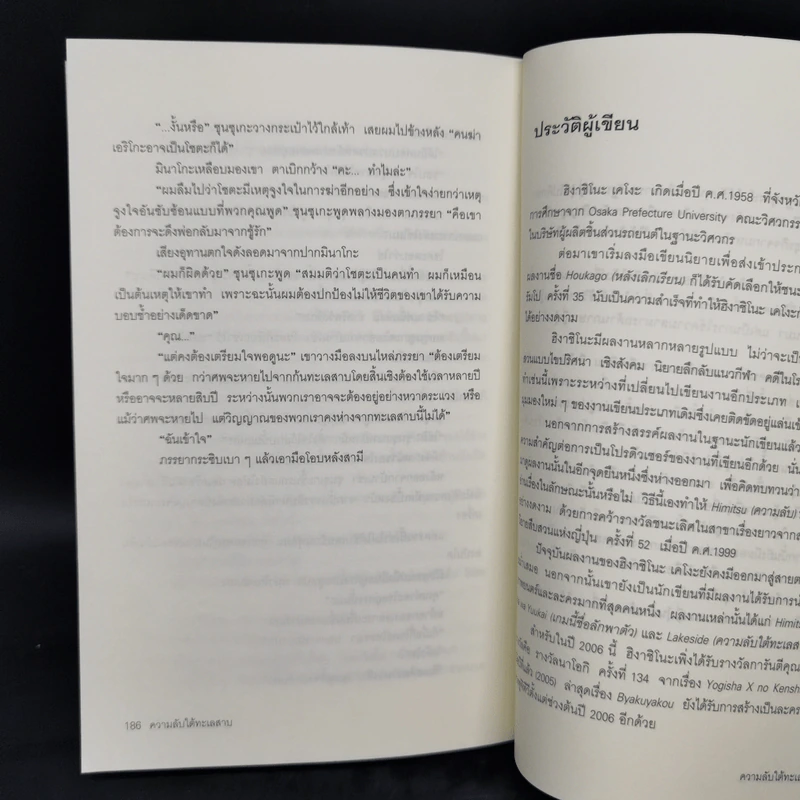 “...งั้นหรือ” ชุนซุเกะวางกระเป๋าไว้ใกล้เท้า เสยผมไปข้างหลัง “คนฆ่า
เอริโกะอาจเป็นโชตะก็ได้”
มินาโกะเหลือบมองเขา ตาเบิกกว้าง “คะ... ทำไมล่ะ”
“ผมลืมไปว่าโชตะมีเหตุจูงใจในการฆ่าอีกอย่าง ซึ่งเข้าใจง่ายกว่าเหตุ
จูงใจอันซับซ้อนแบบที่พวกคุณพูด” ชุนซุเกะพูดพลางมองตาภรรยา “คือเขา
ต้องการจะดึงพ่อกลับมาจากชู้รัก”
เสียงอุทานตกใจดังลอดมาจากปากมินาโกะ
“ผมก็ผิดด้วย” ชุนซุเกะพูด “สมมติว่าโชตะเป็นคนทำ ผมก็เหมือน
เป็นต้นเหตุให้เขาทำ เพราะฉะนั้นผมต้องปกป้องไม่ให้ชีวิตของเขาได้รับความ
บอบช้ำอย่างเด็ดขาด”
“คุณ...”
“แต่คงต้องเตรียมใจพอดูนะ” เขาวางมือลงบนไหล่ภรรยา “ต้องเตรียม
ใจมาก ๆ ด้วย กว่าศพจะหายไปจากก้นทะเลสาบโดยสิ้นเชิงต้องใช้เวลาหลายปี
หรืออาจจะหลายสิบปี ระหว่างนั้นพวกเราอาจจะต้องอยู่อย่างหวาดระแวง หรือ
แม้ว่าศพจะหายไป แต่วิญญาณของพวกเราคงห่างจากทะเลสาบนี้ไม่ได้”
“ฉันเข้าใจ”
ภรรยากระซิบเบา ๆ แล้วเอามือโอบหลังสามี
186 ความลับใต้ทะเลสาบ
ประวัติผู้เขียน
ฮิงาชิโนะ เคโงะ เกิดเมื่อปี ค.ศ.1958 ที่จังหวั
การศึกษาจาก Osaka Prefecture University คณะวิศวกรร
ในบริษัทผู้ผลิตชิ้นส่วนรถยนต์ในฐานะวิศวกร
ต่อมาเขาเริ่มลงมือเขียนนิยายเพื่อส่งเข้าประก
ผลงานชื่อ Houkago (หลังเลิกเรียน) ก็ได้รับคัดเลือกให้ชนะ
ครั้งที่ 35 นับเป็นความสำเร็จที่ทำให้ฮิงาชิโนะ เคโงะก
ได้อย่างงดงาม
ฮิงาชิโนะมีผลงานหลากหลายรูปแบบ ไม่ว่าจะเป็
สวนแบบไขปริศนา เชิงสังคม นิยายลึกลับแนวกีฬา คดีในโร
ทำเช่นนี้เพราะระหว่างที่เปลี่ยนไปเขียนงานอีกประเภท เ
มุมมองใหม่ ๆ ของงานเขียนประเภทเดิมซึ่งเคยติดขัดอยู่แล่นเข้
นอกจากการสร้างสรรค์ผลงานในฐานะนักเขียนแล้ว
ความสำคัญต่อการเป็นโปรดิวเซอร์ของงานที่เขียนอีกด้วย นั่
ดูผลงานนั้นในอีกจุดยืนหนึ่งซึ่งห่างออกมา เพื่อคิดทบทวนว่า
เรื่องในลักษณะนั้นหรือไม่ วิธีนี้เองทำให้ Himitsu (ความลับ)
อย่างงดงาม ด้วยการคว้ารางวัลชนะเลิศในสาขาเรื่องยาวจากส
สืบสวนแห่งญี่ปุ่น ครั้งที่ 52 เมื่อปี ค.ศ.1999
ปัจจุบันผลงานของฮิงาชิโนะ เคโงะยังคงมีออกมาสู่สายต
นอกจากนั้นเขายังเป็นนักเขียนที่มีผลงานได้รับการนำ
และละครมากที่สุดคนหนึ่ง ผลงานเหล่านั้นได้แก่ Himits
Yuukai (เกมนี้ชื่อลักพาตัว) และ Lakeside (ความลับใต้ทะเลส
สำหรับในปี 2006 นี้ ฮิงาชิโนะเพิ่งได้รับรางวัลการันตีคุณ
รางวัลนาโอกิ ครั้งที่ 134 จากเรื่อง Yogisha X no Kensh
(2005) ล่าสุดเรื่อง Byakuyakou ยังได้รับการสร้างเป็นละคร
ตั้งแต่ช่วงต้นปี 2006 อีกด้วย
ความลับใต้ทะเล